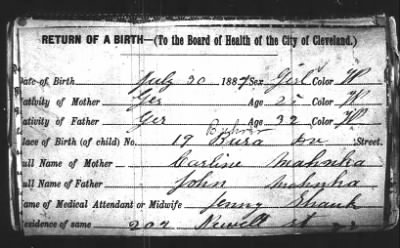 RETURN OF A BIRTH—(To the Board of Health of the City of Cleveland.)
Date of Birth July 30 1887 Sex Girl Color W
Nativity of Mother Ger Age 25 Color W
Nativity of Father Ger Age 32 Color W
Buhrer
Place of Birth (of child) No. 19 Bura Av Street.
Full Name of Mother Carline Mahnha
Full Name of Father John Mahnha
Name of Medical Attendant or Midwife Jenny Shauk
Residence of same 207 Newell st